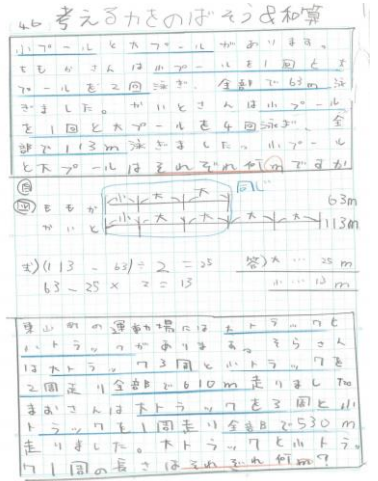 4/6 考える力をのばそう&和算
小プールと大プールがあります。
ももかさんは小プールを1回と大
プールを2回泳ぎ、全部で63m泳
ぎました。かいとさんは小プール
を1回と大プールを4回泳ぎ、全
部で113m泳ぎました。小プール
と大プールはそれぞれ何mですか
同じ
図 ももか 小 大 大 63m
かいと 小 大 大 大 大 113m
式)(113-63)÷2=25 答)大…25m
63-25×2=13 小…13m
東山町の運動場には大トラックと
小トラックがあります。そらさん
は大トラック3周と小トラックを
2周走り全部で610m走りました
まおさんは大トラックを3周と小
トラックを1周走り全部で530m
走りました。大トラックと小トラ
ック1周の長さはそれぞれ何m?